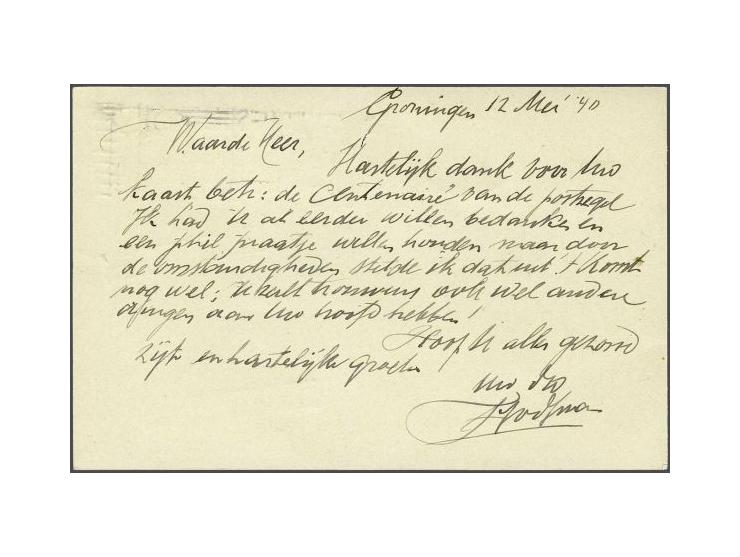 Groningen 12 Mei '40
Waarde Heer,
Hartelijk dank voor Uw
kaart betr: de Centenaire van de postzegel
Ik had U al eerder willen bedanken en
een phil praatje willen houden maar door
de omstandigheden stelde ik dat uit. 't Komt
nog wel; U zult trouwens ook wel andere
dingen aan Uw hoofd hebben!
Hoop U allen gezond
zijt en hartelijke groeten
Uw dw